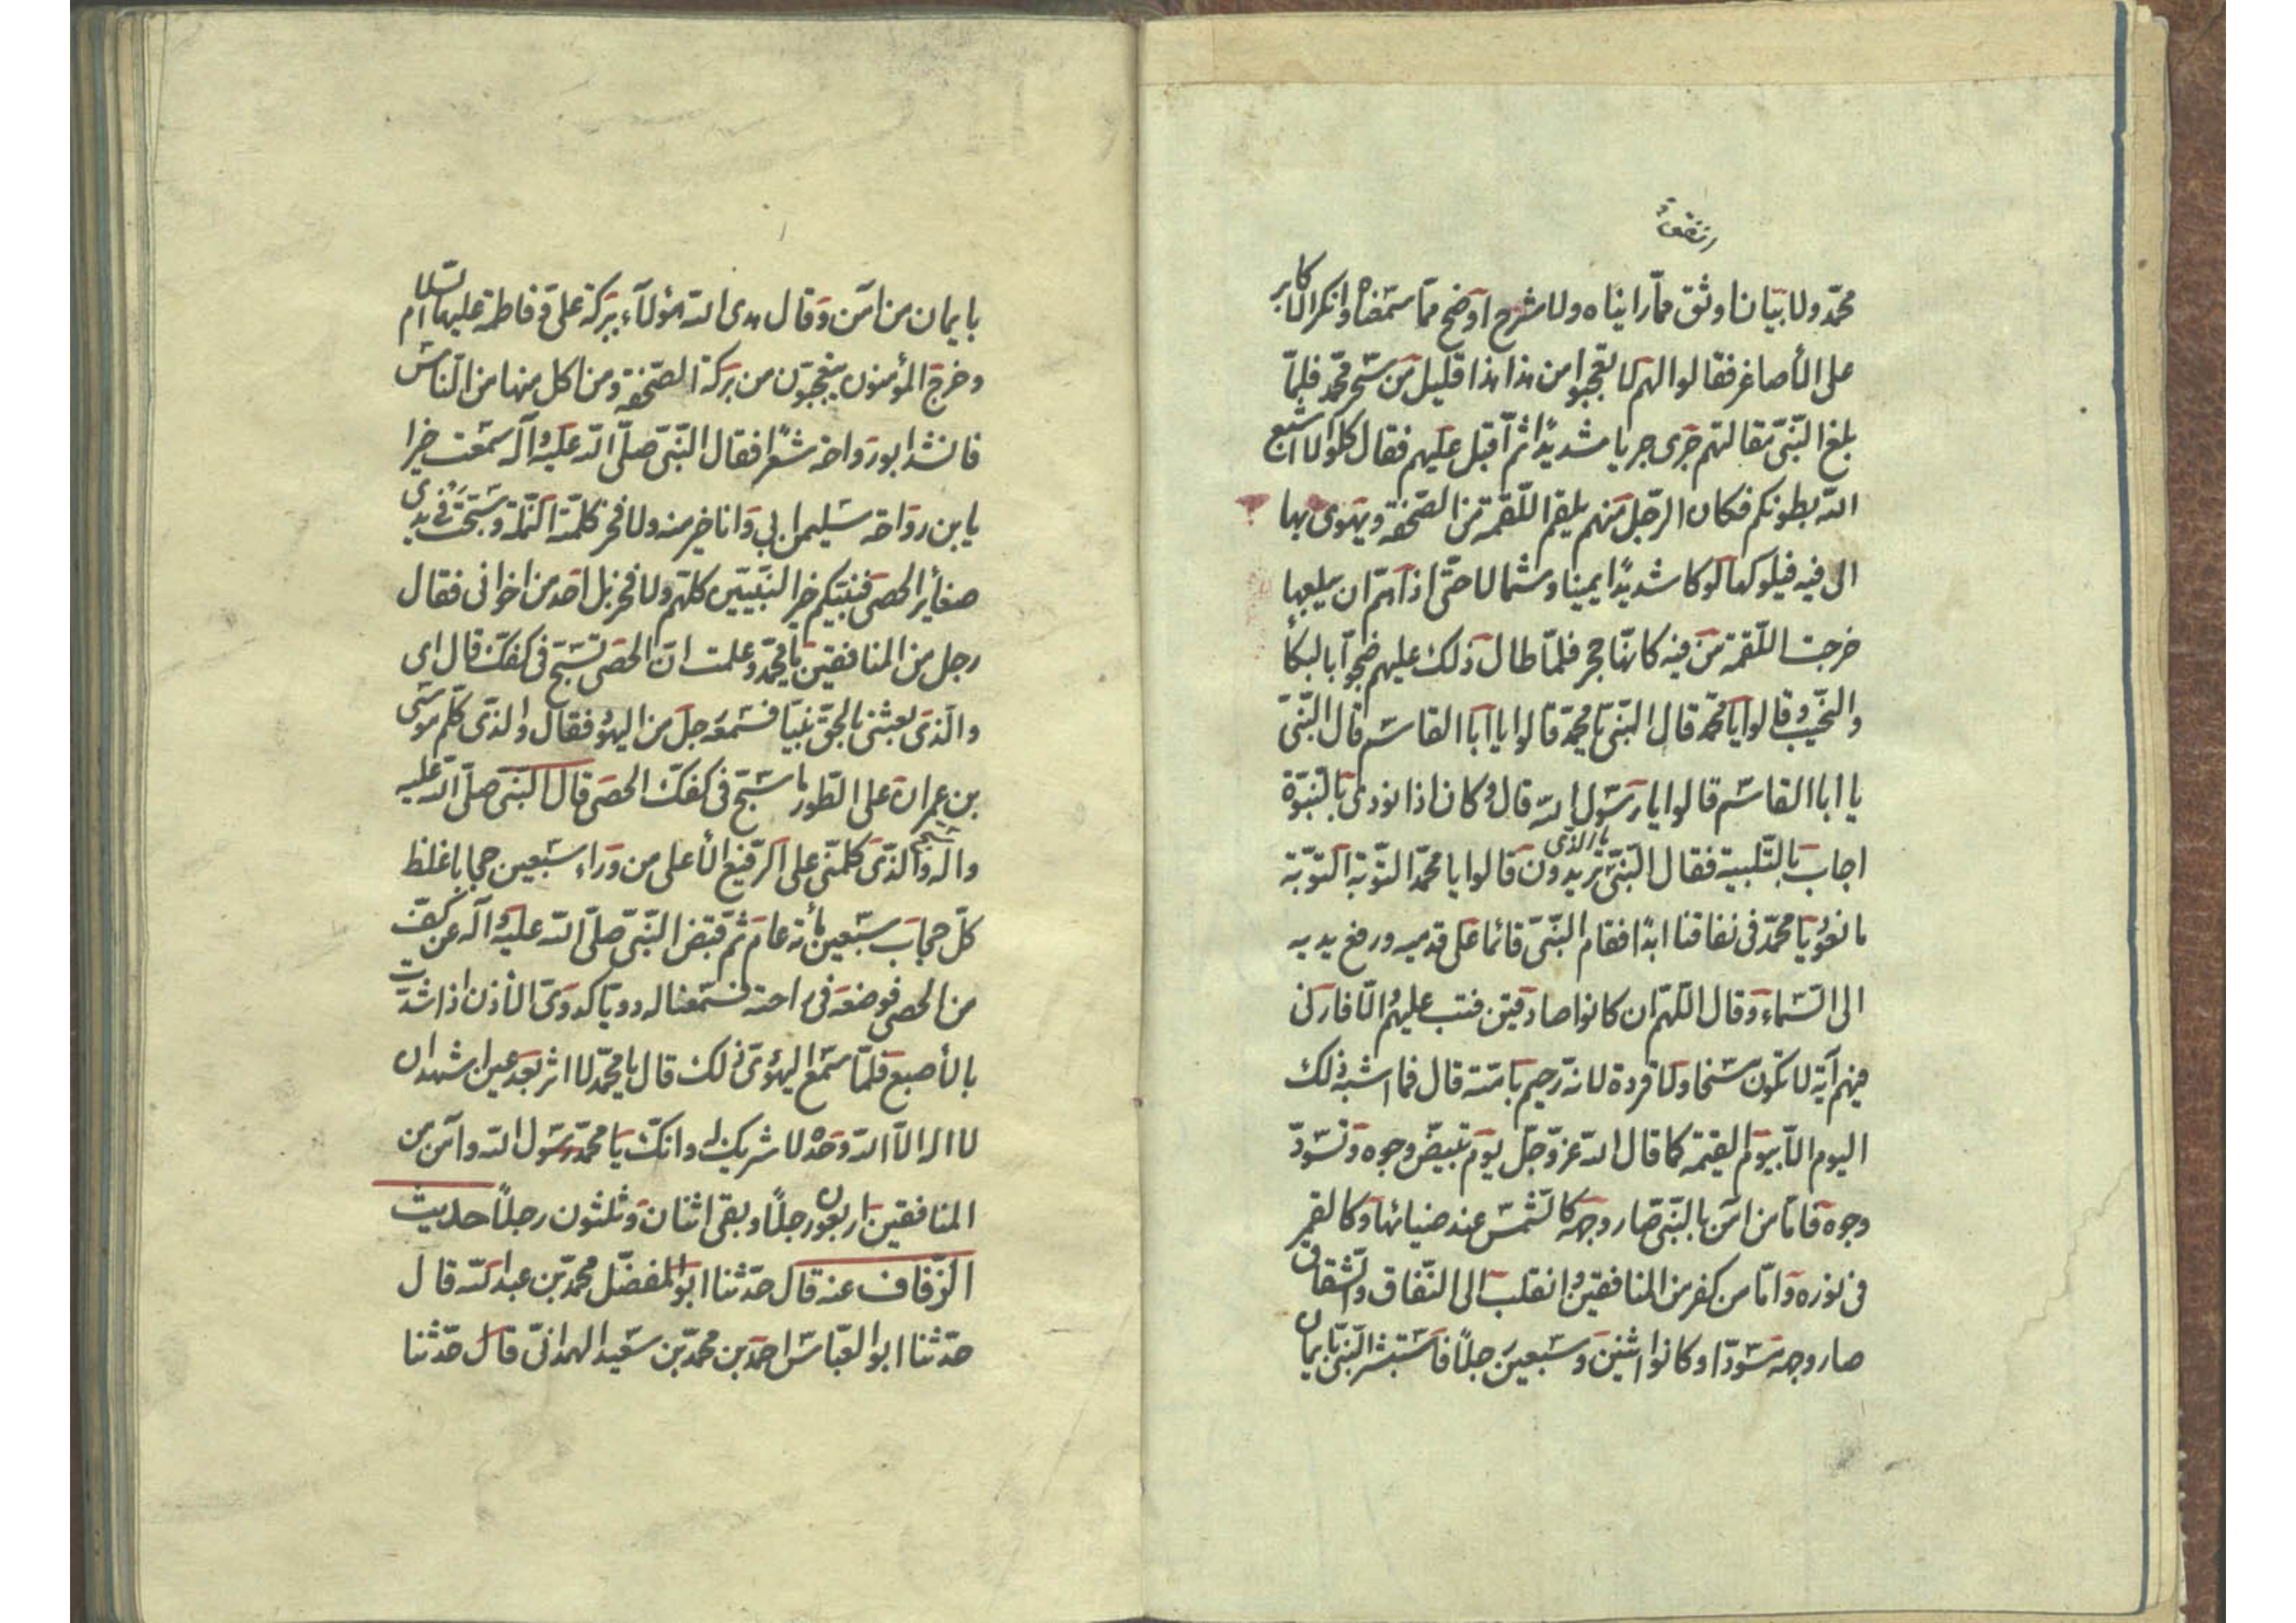 محمّد ولا بيانا اوثق ممّا رايناه ولا شرح اوضح ممّا سمعناه وانكر الاكابر
على الأصاغر فقالوا لهم لا تعجبوا من هذا هذا قليل من سحر محمّد فلمّا
بلغ النّبىّ مقالتهم جرى جريا شديدًا ثم اقبل عليهم فقال كلوا لا اشبع
الله بطونكم فكان الرّجل منهم يلقم اللّقمة من الصّحفة ويهوى بها
الى فيه فيلوكها لوكا شديدًا يمينا وشمالا حتّى اذا همّ ان يبلعها
خرجت اللّقمة من فيه كانهّا حجر فلمّا طال ذلك عليهم ضجّوا بالبكأ
والنّحيب وقالوا يا محمّد قال النّبىّ يا محمّد قالوا يا ابا القاسم قال النّبىّ
يا ابا القاسم قالوا يا رسول الله قال وكان اذا نودى بالنّبوّة
اجاب بالتّلبية فقال النّبىّ ما الذّى تريدون قالوا يا محمّد التّوبة التّوبة
ما نعود يا محمّد فى نفاقنا ابدًا فقام النّبىّ قائما على قدميه ورفع يديه
الى السّماء وقال اللّهمّ ان كانوا صادقين فتب عليهم والّا فارنى
فيهم آية لا تكون مسخا ولا قردة لانه رحيم بامّته قال فما اشبه ذلك
اليوم الّا بيوم القيمة كما قال الله عزّ وجلّ يوم تبيضّ وجوه وتسودّ
وجوه فامّا من امن بالنّبىّ صار وجهه كالشّمس عند ضيائها وكالقمر
فى نوره وامّا من كفر من المنافقين وانقلب الى النّفاق والشّقاق
صار وجهه مسودّا وكانوا اثنين وسبعين رجلًا فاستبشر النّبىّ بايمان
بايمان من امن وقال هدى الله هؤلاء ببركة علىّ وفاطمة عليهما السّلام
وخرج المؤمنون يتعجّبون من بركة الصّحفة ومن اكل منها من النّاس
فانشد ابو رواحة شعرًا فقال النّبىّ صلّى الله عليه وآله سمعت خيرا
يابن رواحة سليمان نبى وانا خير منه ولا فخر كلمته النّملة وسبّحت فى يدى
صغأير الحصى فنبيّكم خير النّبيّين كلهّم ولا فخر بل احد من اخوانى فقال
رجل من المنافقين يا محمّد وعلمت انّ الحصى تسبّح فى كفكّ قال اى
والّذى بعثنى بالحقّ نبيّا فسمعه رجل من اليهود فقال والذّى كلّم موسى
بن عمران على الطّور ما سبّح فى كفكّ الحصى قال النّبىّ صلّى الله عليه
واله والذّى كلّمنى على الرّفيع الأعلى من وراء سبعين حجابا غلظ
كلّ حجاب سبعين مأة عام ثم قبض النّبىّ صلّى الله عليه وآله عن كفّ
من الحصى فوضعه فى راحته فسمعنا له دويّا كدوىّ الأذن اذا شدّت
بالأصبع فلمّا سمع اليهودىّ ذلك قال يا محمّد لا اثر بعد عين اشهد ان
لا اله الّا الله وحده لا شريك له وانّك يا محمّد رسول الله وامن من
المنافقين اربعون رجلًا وبقى اثنان وثلثون رجلًا حديث
الزّفاف عنه قال حدّثنا ابو المفضّل محمّد بن عبد الله قال
حدّثنا ابو العبّاس احمد بن محمّد بن سعيد الهمدانىّ قال حدّثنا